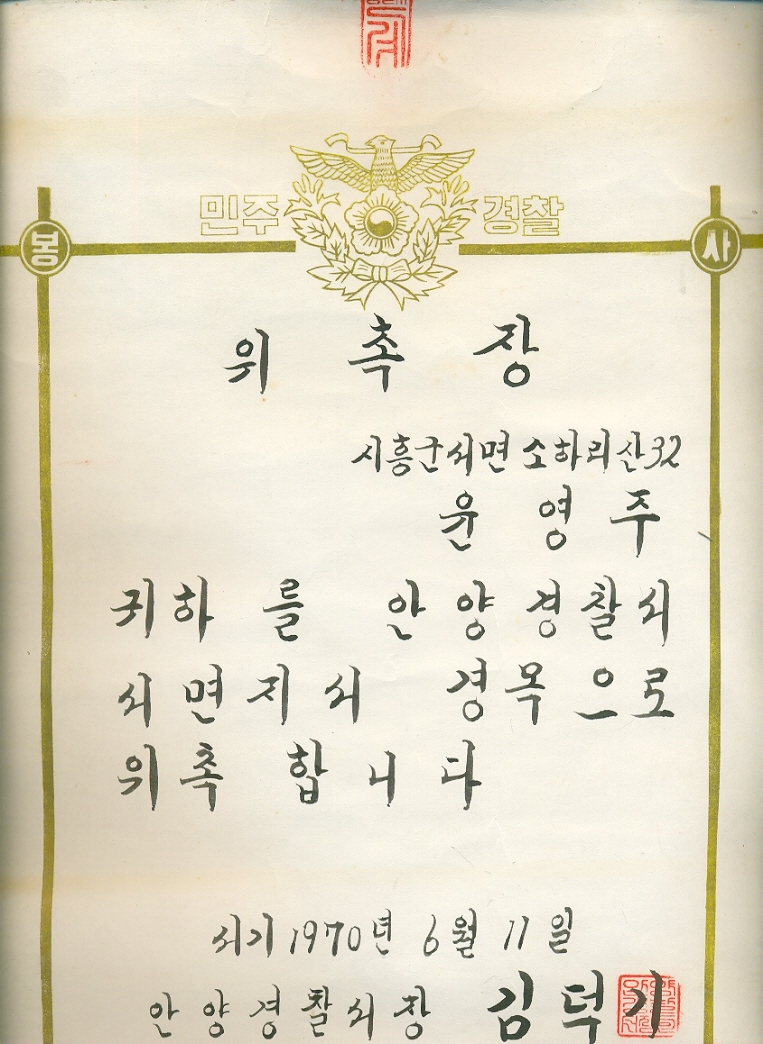 민주 경찰
봉 사
위 촉 장
시흥군서면 소하리산32
윤 영 주
귀하 를 안양경찰서
서면지서 경목으로
위촉 합니다
서기 1970년 6월 11일
안양경찰서장 김덕기